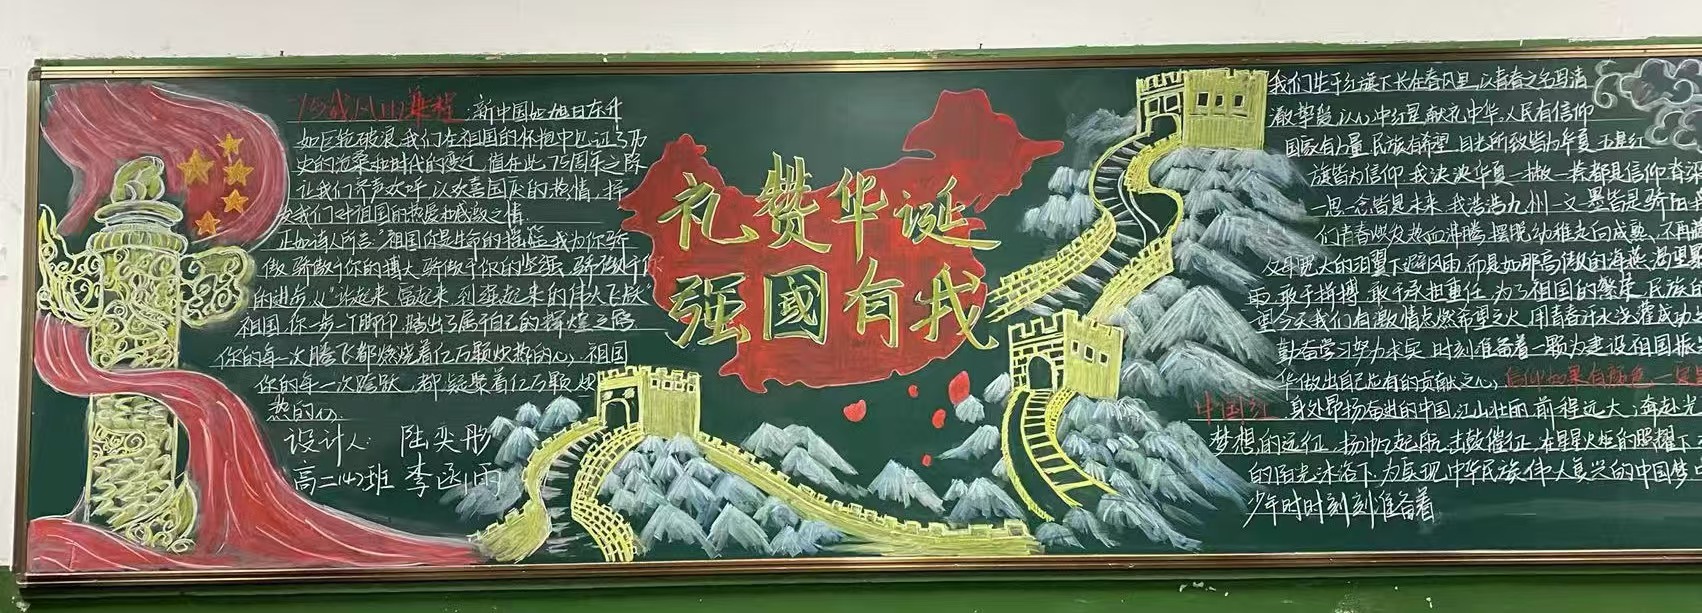 新中国如旭日东升
如巨轮破浪,我们在祖国的怀抱中见证了历
史的沧桑和时代的变迁,值在此75周年之际
让我们齐声欢呼,以欢喜国庆的热情,抒
发我们对祖国的热爱和感激之情.
正如诗人所言:"祖国你是生命的摇篮,我为你骄
傲,骄傲于你的博大,骄傲于你的坚强,骄傲于你
的进步,从"站起来,富起来,到强起来的伟大飞跃"
祖国,你一步一个脚印,踏出了属于自己的辉煌之路
你的每一次腾飞都燃烧着亿万颗炽热的心,祖国
你的每一次跨跃,都凝聚着亿万颗炽
热的心.
设计人: 陆奕彤
高二(4)班 李函雨
礼赞华诞
强国有我
我们生于红旗下长在春风里,以青春之名
以心中红星献礼中华,人民有信仰
国家有力量,民族有希望,目光所致皆为华夏,五星红
旗皆为信仰,我泱泱华夏,一撇一捺都是信仰
一思一念皆是未来,我浩浩九州一文一墨皆是骄阳,我
们青春焕发热血沸腾,摆脱幼稚走向成熟,不再
父母宽大的羽翼下避风雨,而是如那高傲的海燕
雨,敢于拼搏,敢于承担重任,为了祖国的繁荣,民族的
今天我们有激情点燃希望之火,用青春汗水浇灌成功之
勤奋学习努力求实,时刻准备着一颗为建设祖国振兴
华做出自己应有的贡献之心,信仰如果有颜色,一定是
中国红 身处昂扬奋进的中国,江山壮丽,前程远大,奔赴光
梦想的远征,扬帆起航,击鼓催征,在星星火炬的照耀下
的阳光沐浴下,为实现中华民族伟大复兴的中国梦
少年时时刻刻准备着